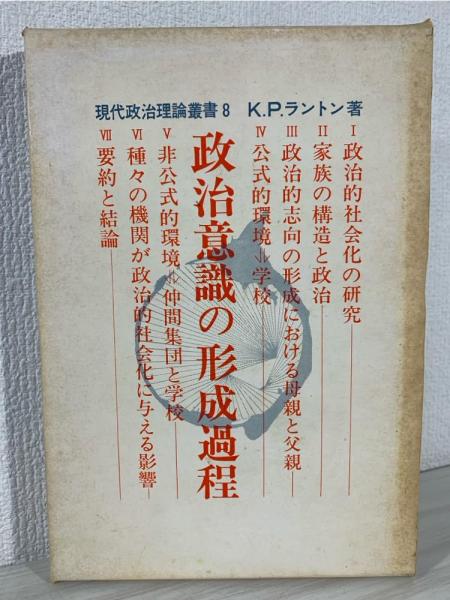 現代政治理論叢書8 K.P.ラントン著
I 政治的社会化の研究
II 家族の構造と政治
III 政治的志向の形成における母親と父親
IV 公式的環境=学校
政治意識の形成過程
V 非公式的環境=仲間集団と学校
VI 種々の機関が政治的社会化に与える影響
VII 要約と結論